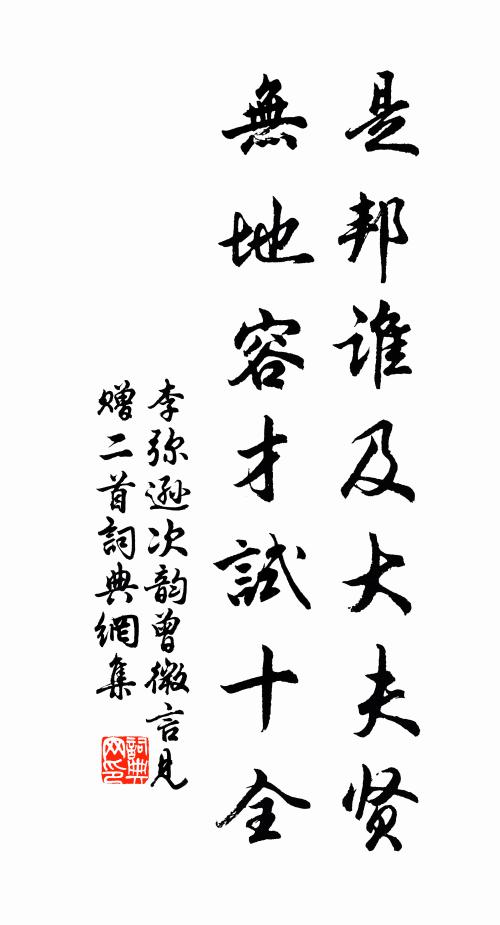 是邦谁及大夫贤
無地容才試十全
李弥遜次韵曾微言見
赠二首詞典網集
詞典
网印